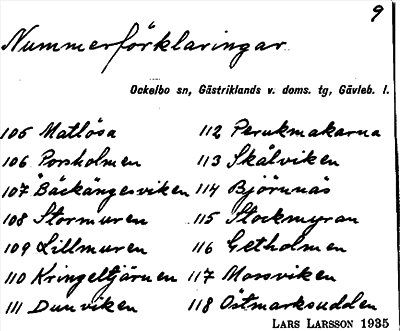 9
Nummerförklaringar
Ockelbo sn, Gästriklands v. doms. tg, Gävleb. l.
105 Matlösa
106 Porsholmen
107 Bäckängesviken
108 Stormuren
109 Lillmuren
110 Kringeltjärnen
111 Dunviken
112 Perukmakarna
113 Skålviken
114 Björnnäs
115 Stockmyran
116 Getholmen
117 Morsviken
118 Östmarksudden
LARS LARSSON 1935